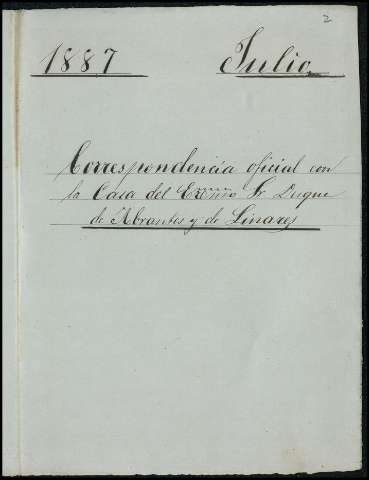 2
1887 Julio
Correspondencia oficial con
la Casa del Excmo Sr Duque
de Abrantes y de Linares